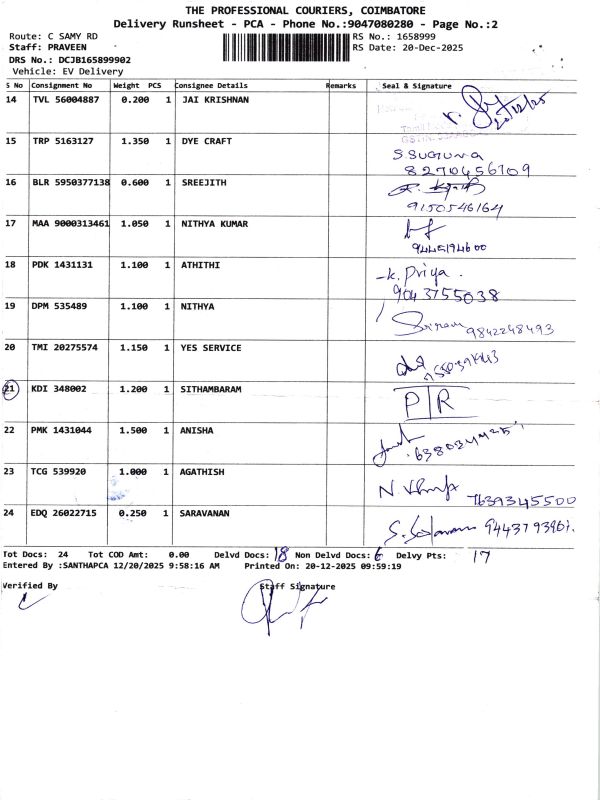 THE PROFESSIONAL COURIERS, COIMBATORE
Delivery Runsheet - PCA - Phone No.:9047080280 - Page No.:2
Route: C SAMY RD RS No.: 1658999
Staff: PRAVEEN RS Date: 20-Dec-2025
DRS No.: DCJB165899902
Vehicle: EV Delivery
S No Consignment No Weight PCS Consignee Details Remarks Seal & Signature
14 TVL 56004887 0.200 1 JAI KRISHNAN 20/12/25
15 TRP 5163127 1.350 1 DYE CRAFT S SUGUNA
8270456709
16 BLR 5950377138 0.600 1 SREEJITH
9150546164
17 MAA 9000313461 1.050 1 NITHYA KUMAR
9445194600
18 PDK 1431131 1.100 1 ATHITHI K. Priya.
9043755038
19 DPM 535489 1.100 1 NITHYA
Sriram 9842248493
20 TMI 20275574 1.150 1 YES SERVICE
21 KDI 348002 1.200 1 SITHAMBARAM P|R
22 PMK 1431044 1.500 1 ANISHA
23 TCG 539920 1.000 1 AGATHISH N
7639345500
24 EDQ 26022715 0.250 1 SARAVANAN
Tot Docs: 24 Tot COD Amt: 0.00 Delvd Docs: 18 Non Delvd Docs: 6 Delvy Pts: 17
Entered By :SANTHAPCA 12/20/2025 9:58:16 AM Printed On: 20-12-2025 09:59:19
Verified By Staff Signature